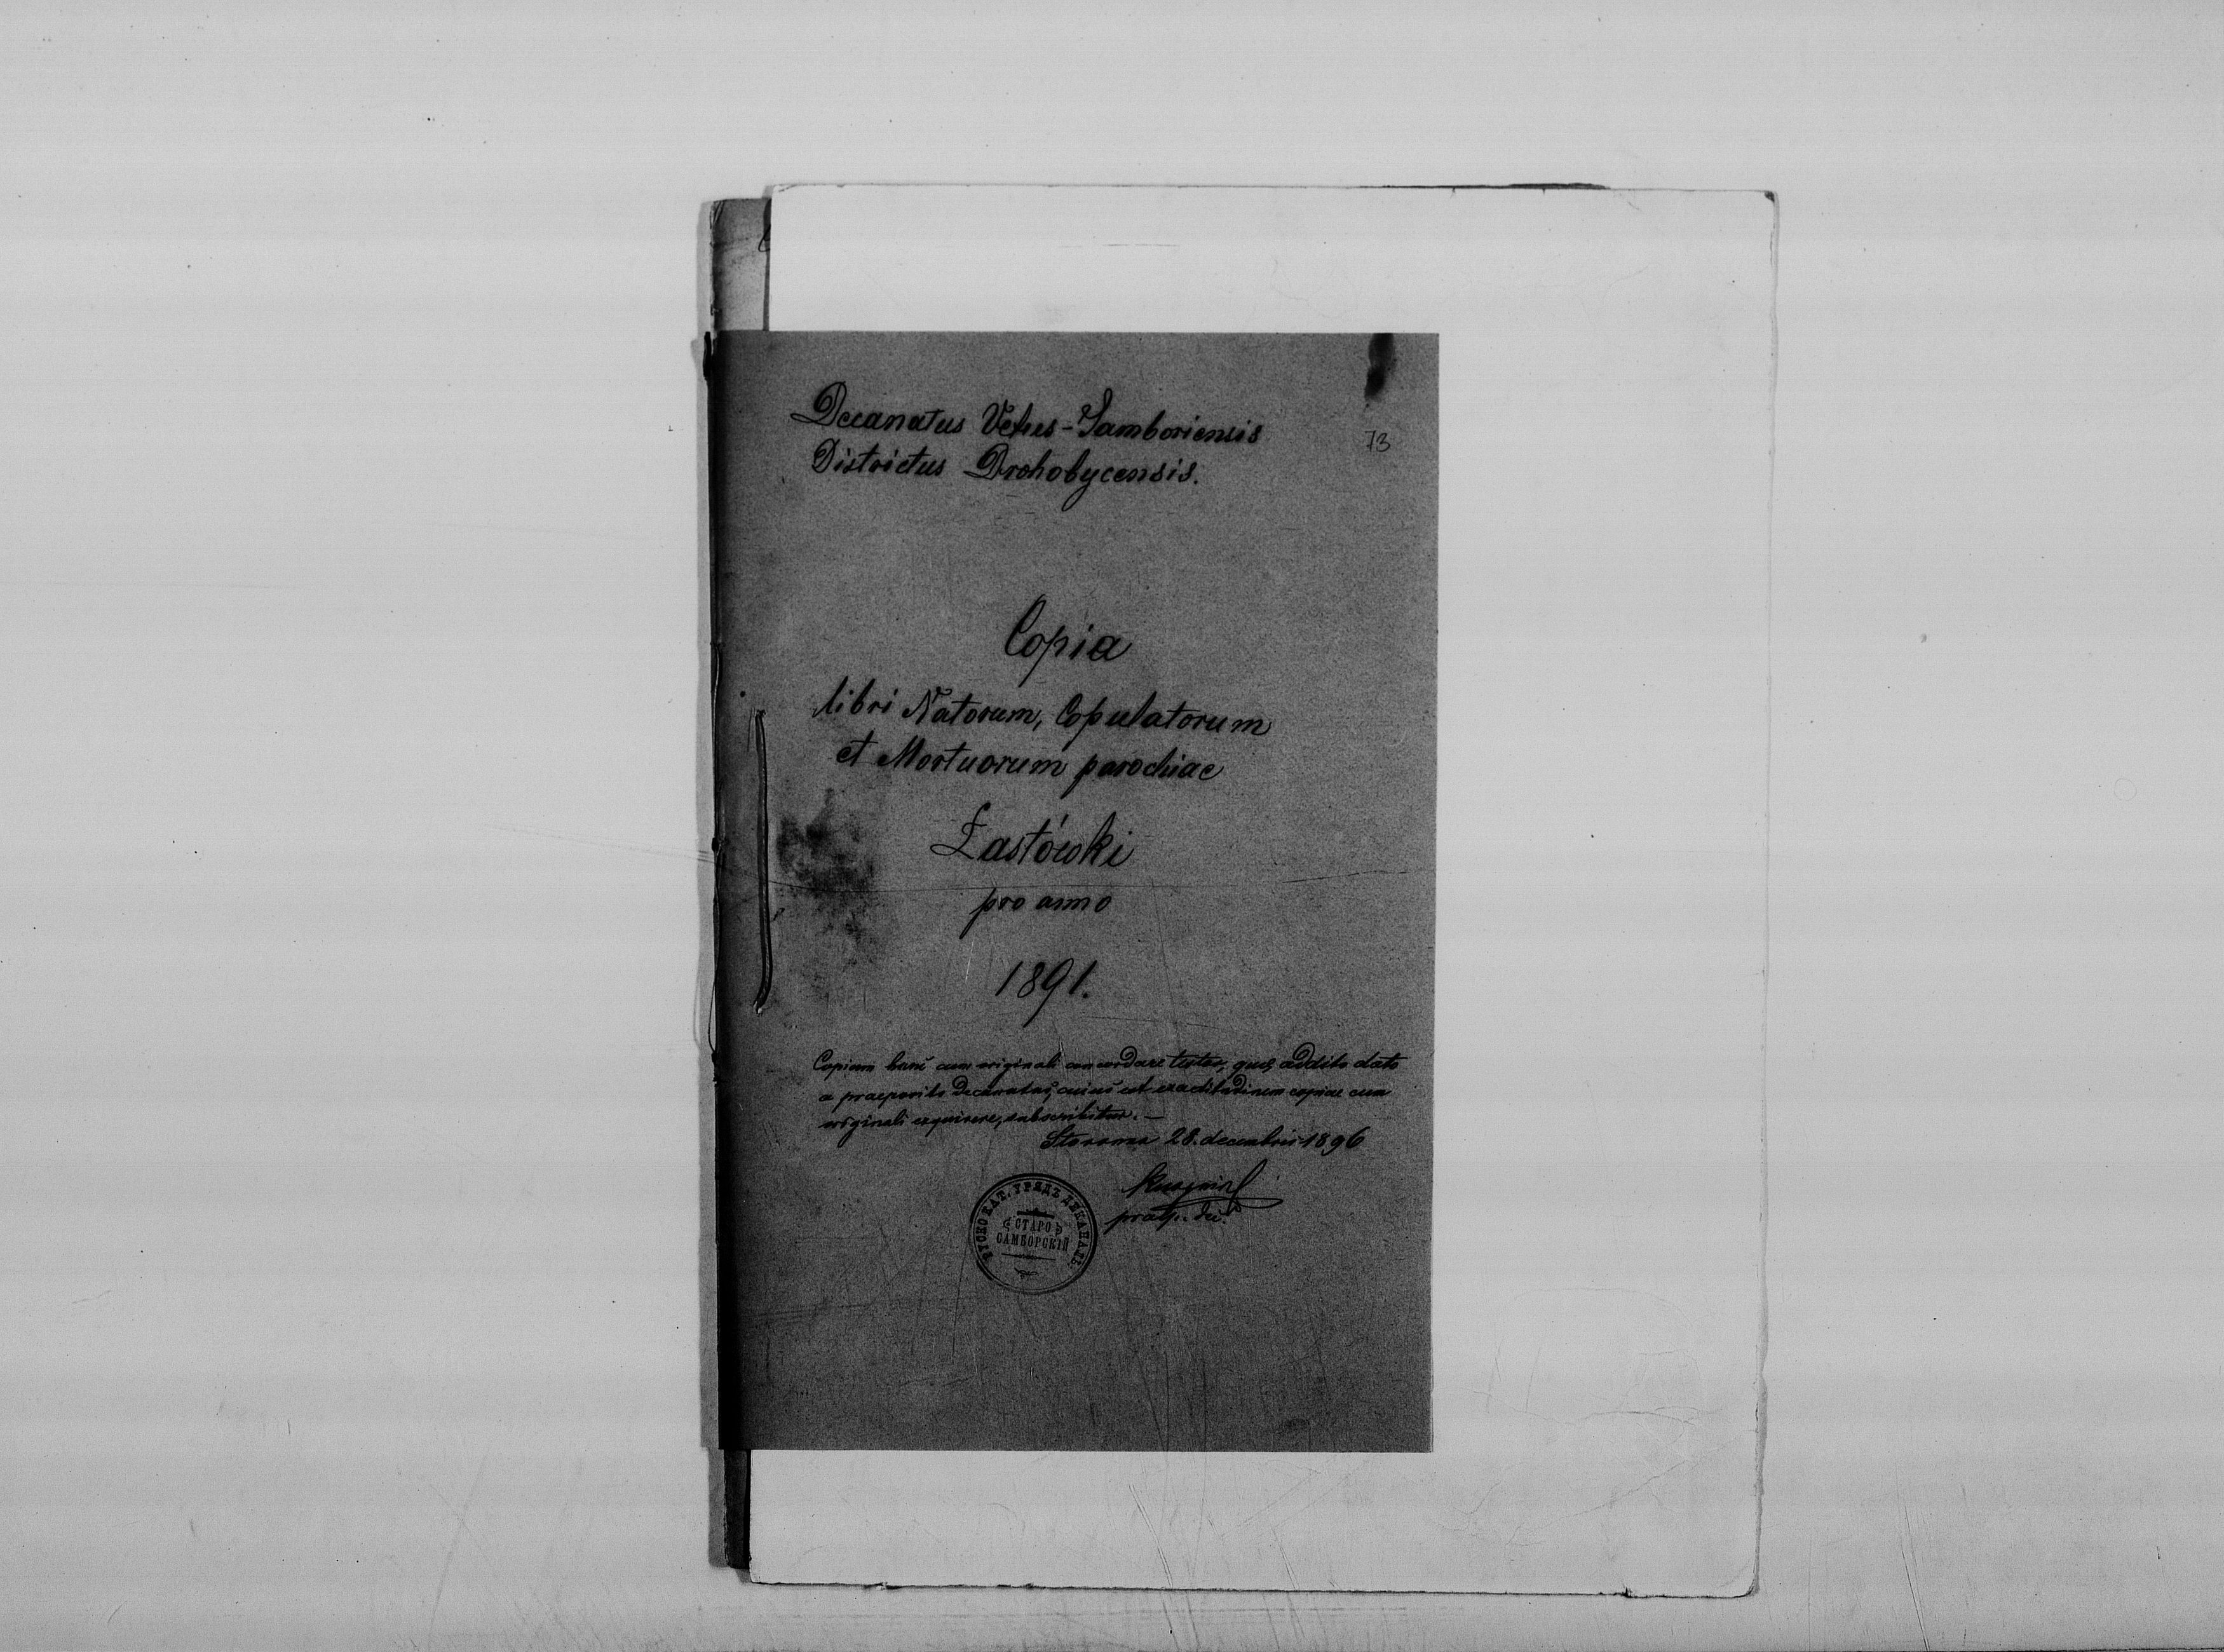 Decanatus Vetus-Samboriensis
Districtus Drohobycensis.
73
Copia
libri Natorum, Copulatorum
et Mortuorum parochiae
Łastówki
pro anno
1891.
Copiam hanc cum originali concordare testor, quod addito dato
a praeposito decanatus, cuius est exactitudinem copiae cum
originali exquirere, subscribitur. —
28. decembris 1896
РУСКО КАТ. УРЯДЪ ДЕКАНАЛЬ.
СТАРО
САМБОРСКІЙ